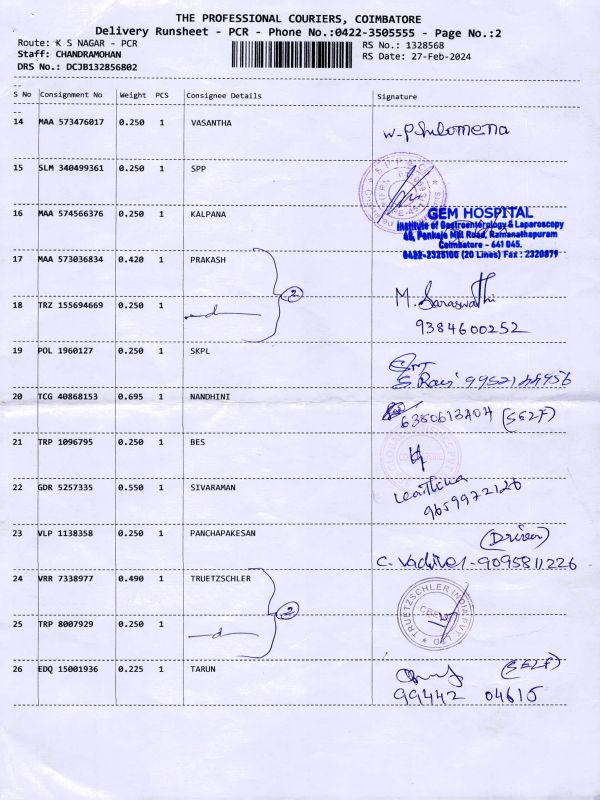 THE PROFESSIONAL COURIERS, COIMBATORE
Delivery Runsheet - PCR - Phone No.:0422-3505555 - Page No.:2
Route: K S NAGAR - PCR
RS No.: 1328568
Staff: CHANDRAMOHAN
RS Date: 27-Feb-2024
DRS No.: DCJB132856802
S No Consignment No Weight PCS Consignee Details Signature
14 MAA 573476017 0.250 1 VASANTHA
W-P.Philomena
15 SLM 340499361 0.250 1 SPP
16 MAA 574566376 0.250 1 KALPANA
GEM HOSPITAL
Institute of Gastroenterology & Laparoscopy
45, Pankaja Mill Road, Ramanathapuram
Coimbatore - 641 045.
0422-2325100 (20 Lines) Fax : 2320879
17 MAA 573036834 0.420 1 PRAKASH
2
18 TRZ 155694669 0.250 1
M. Saraswathi
9384600252
19 POL 1960127 0.250 1 SKPL
S. Ravi 9952144956
20 TCG 40868153 0.695 1 NANDHINI
(SELF)
21 TRP 1096795 0.250 1 BES
22 GDR 5257335 0.550 1 SIVARAMAN
9659972126
23 VLP 1138358 0.250 1 PANCHAPAKESAN
(Driver)
C. Vadivel - 9095811226
24 VRR 7338977 0.490 1 TRUETZSCHLER
2
TRUETZSCHLER INDIA PVT LTD
CBE
25 TRP 8007929 0.250 1
26 EDQ 15001936 0.225 1 TARUN
(SELF)
99442 04615